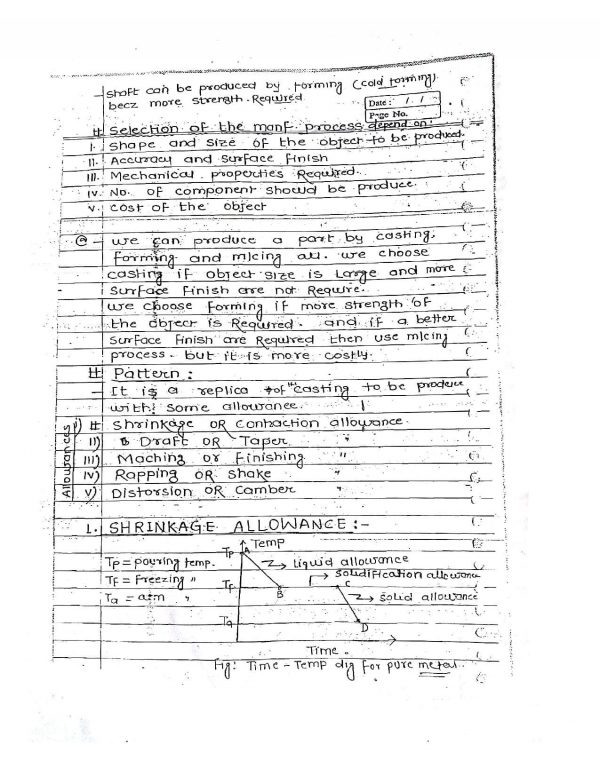 - shaft can be produced by forming (cold forming)
becz more strength Required
Date : / /
Page No.
# Selection of the manf process depend on:
I. Shape and size of the object to be produced.
II. Accuracy and surface Finish
III. Mechanical properties Required.
IV. No. of component should be produce.
V. cost of the object
- we can produce a part by casting,
forming and m/cing all. we choose
casting if object size is Large and more
surface Finish are not Require.
we choose Forming if more strength of
the object is Required. and if a better
surface finish are Required then use m/cing
process. but it is more costly.
# Pattern :
- It is a replica of the casting to be produce
with some allowance.
Allowances
i) # Shrinkage OR Contraction allowance.
II) Draft OR Taper "
III) Maching or Finishing "
IV) Rapping OR Shake "
V) Distorsion OR Camber "
1. SHRINKAGE ALLOWANCE :-
Temp
Tp A
Tp = pouring temp.
→ liquid allowance
Tf = Freezing "
→ Solidification allowance
Tf B C
Ta = atm "
→ solid allowance
Ta D
Time .
Fig: Time - Temp dig for pure metal.